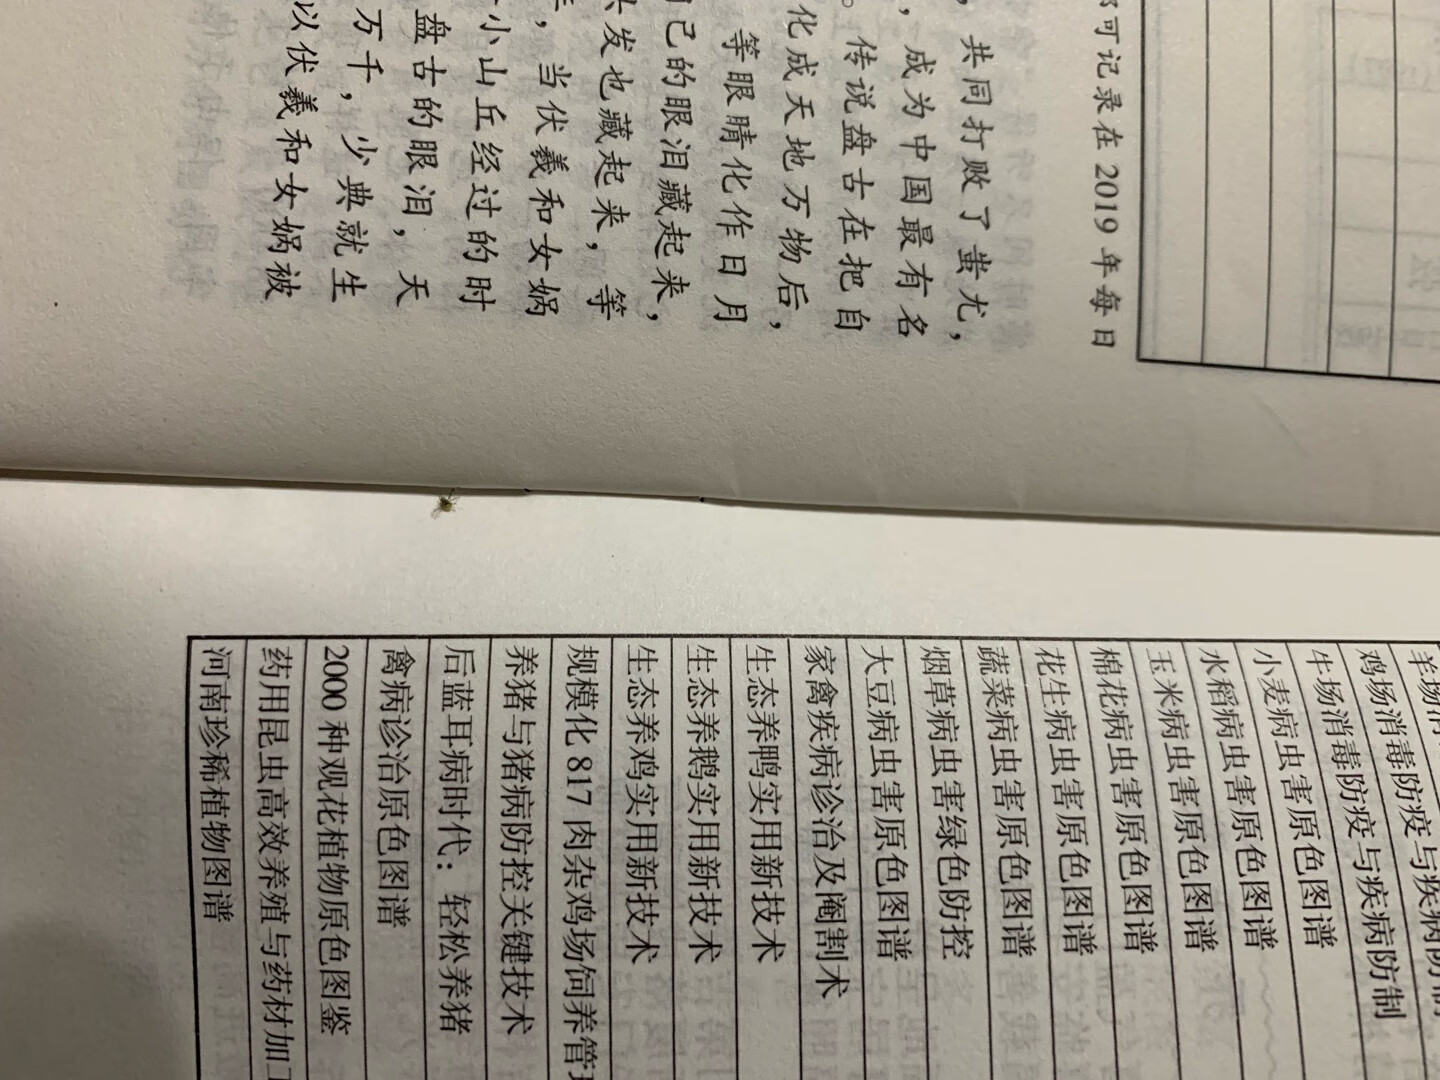 可记录在 2019 年每日
，共同打败了蚩尤，
，成为中国最有名
。传说盘古在把自
化成天地万物后，
等眼睛化作日月
己的眼泪藏起来，
发也藏起来，等
，当伏羲和女娲
小山丘经过的时
盘古的眼泪，天
万千，少典就生
以伏羲和女娲被
羊场消毒防疫与疾病防制
鸡场消毒防疫与疾病防制
牛场消毒防疫与疾病防制
小麦病虫害原色图谱
水稻病虫害原色图谱
玉米病虫害原色图谱
棉花病虫害原色图谱
花生病虫害原色图谱
蔬菜病虫害原色图谱
烟草病虫害绿色防控
大豆病虫害原色图谱
家禽疾病诊治及阉割术
生态养鸭实用新技术
生态养鹅实用新技术
生态养鸡实用新技术
规模化 817 肉杂鸡场饲养管理
养猪与猪病防控关键技术
后蓝耳病时代：轻松养猪
禽病诊治原色图谱
2000 种观花植物原色图鉴
药用昆虫高效养殖与药材加工
河南珍稀植物图谱